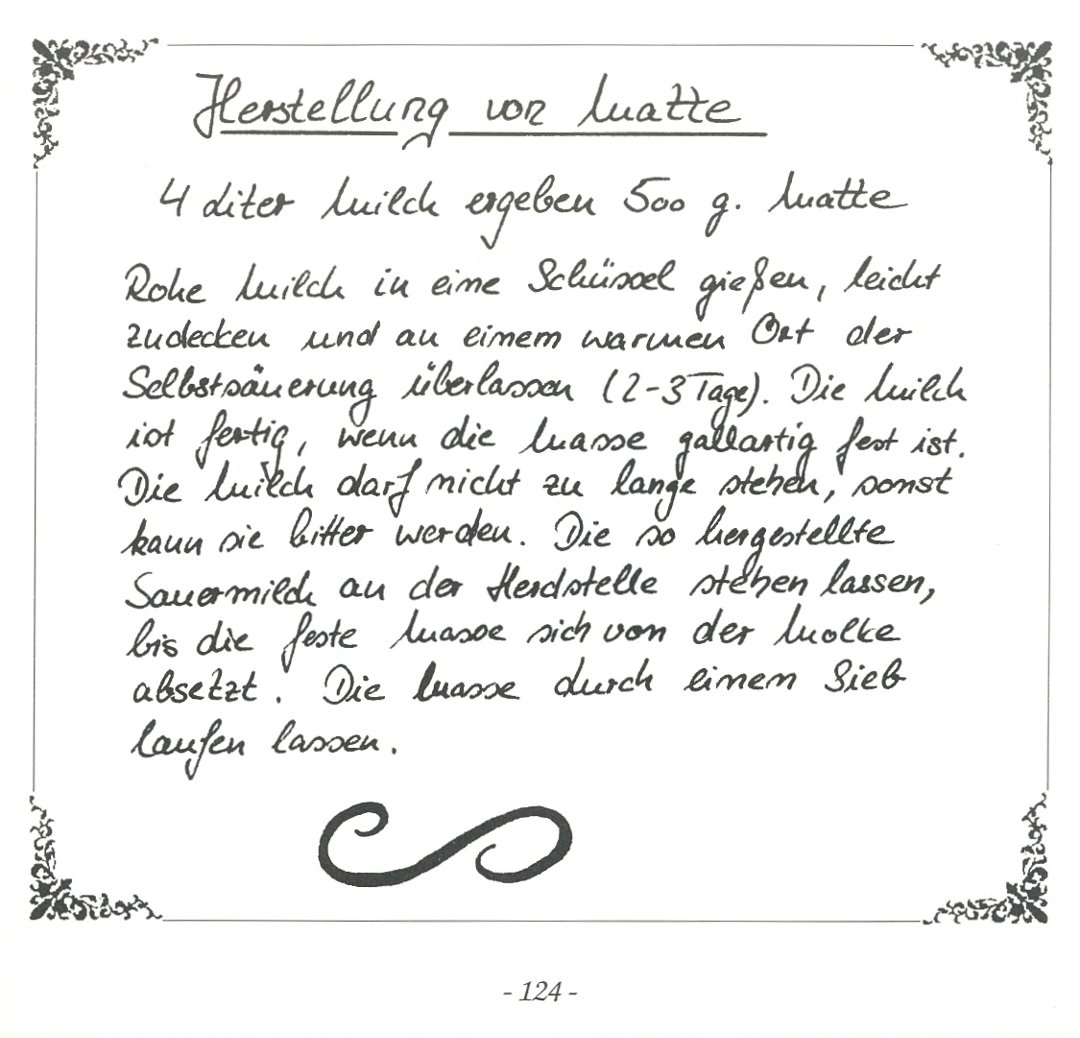 Herstellung von Matte
4 Liter Milch ergeben 500 g. Matte
Rohe Milch in eine Schüssel gießen, leicht
zudecken und an einem warmen Ort der
Selbstsäuerung überlassen (2-3 Tage). Die Milch
ist fertig, wenn die Masse gallartig fest ist.
Die Milch darf nicht zu lange stehen, sonst
kann sie bitter werden. Die so hergestellte
Sauermilch an der Herdstelle stehen lassen,
bis die feste Masse sich von der Molke
absetzt. Die Masse durch einem Sieb
laufen lassen.
- 124 -